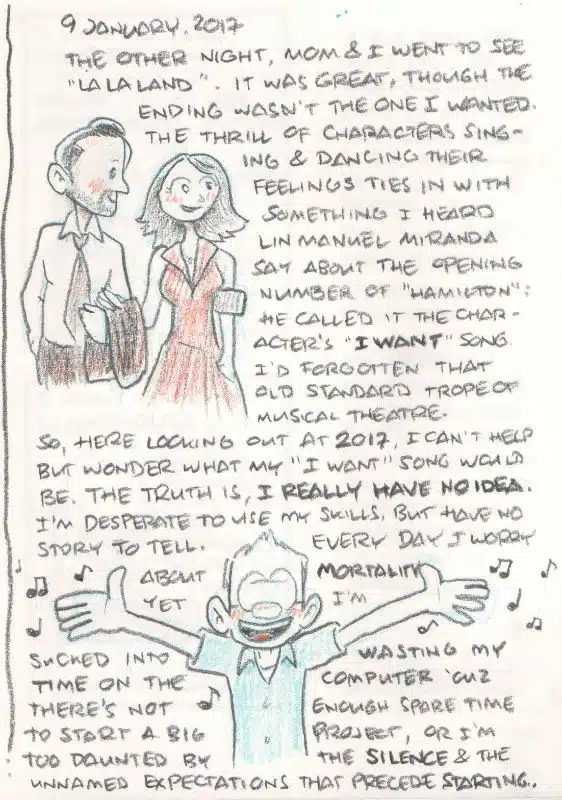 9 JANUARY, 2017
THE OTHER NIGHT, MOM & I WENT TO SEE
"LA LA LAND". IT WAS GREAT, THOUGH THE
ENDING WASN'T THE ONE I WANTED.
THE THRILL OF CHARACTERS SING-
ING & DANCING THEIR
FEELINGS TIES IN WITH
SOMETHING I HEARD
LIN MANUEL MIRANDA
SAY ABOUT THE OPENING
NUMBER OF "HAMILTON":
HE CALLED IT THE CHAR-
ACTER'S "I WANT" SONG.
I'D FORGOTTEN THAT
OLD STANDARD TROPE OF
MUSICAL THEATRE.
SO, HERE LOOKING OUT AT 2017, I CAN'T HELP
BUT WONDER WHAT MY "I WANT" SONG WOULD
BE. THE TRUTH IS, I REALLY HAVE NO IDEA.
I'M DESPERATE TO USE MY SKILLS, BUT HAVE NO
STORY TO TELL. EVERY DAY I WORRY
ABOUT MORTALITY
YET I'M
SUCKED INTO WASTING MY
TIME ON THE COMPUTER 'CUZ
THERE'S NOT ENOUGH SPARE TIME
TO START A BIG PROJECT, OR I'M
TOO DAUNTED BY THE SILENCE & THE
UNNAMED EXPECTATIONS THAT PRECEDE STARTING.